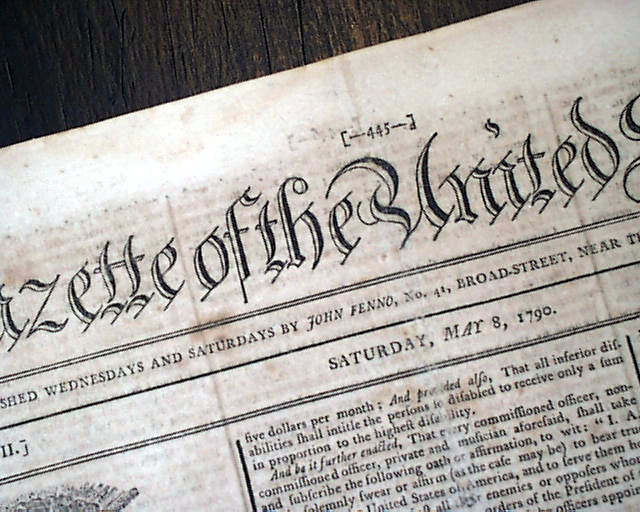 [—445—]
azette of the United
SHED WEDNESDAYS AND SATURDAYS BY JOHN FENNO, No. 41, BROAD-STREET, NEAR
SATURDAY, MAY 8, 1790.
II.]
five dollars per month; And provided also, That all inferior dif-
abilities ſhall intitle the perſons ſo diſabled to receive only a ſum
in proportion to the higheſt diſability.
And be it further enacted, That every commiſſioned officer, non-
commiſſioned officer, private and muſician aforeſaid, ſhall take
and ſubſcribe the following oath or affirmation, to wit: "I. A
ſolemnly ſwear or affirm (as the caſe may be) to bear
United States of America, and to ſerve them
all enemies or oppoſers
orders of the Preſident of
officers